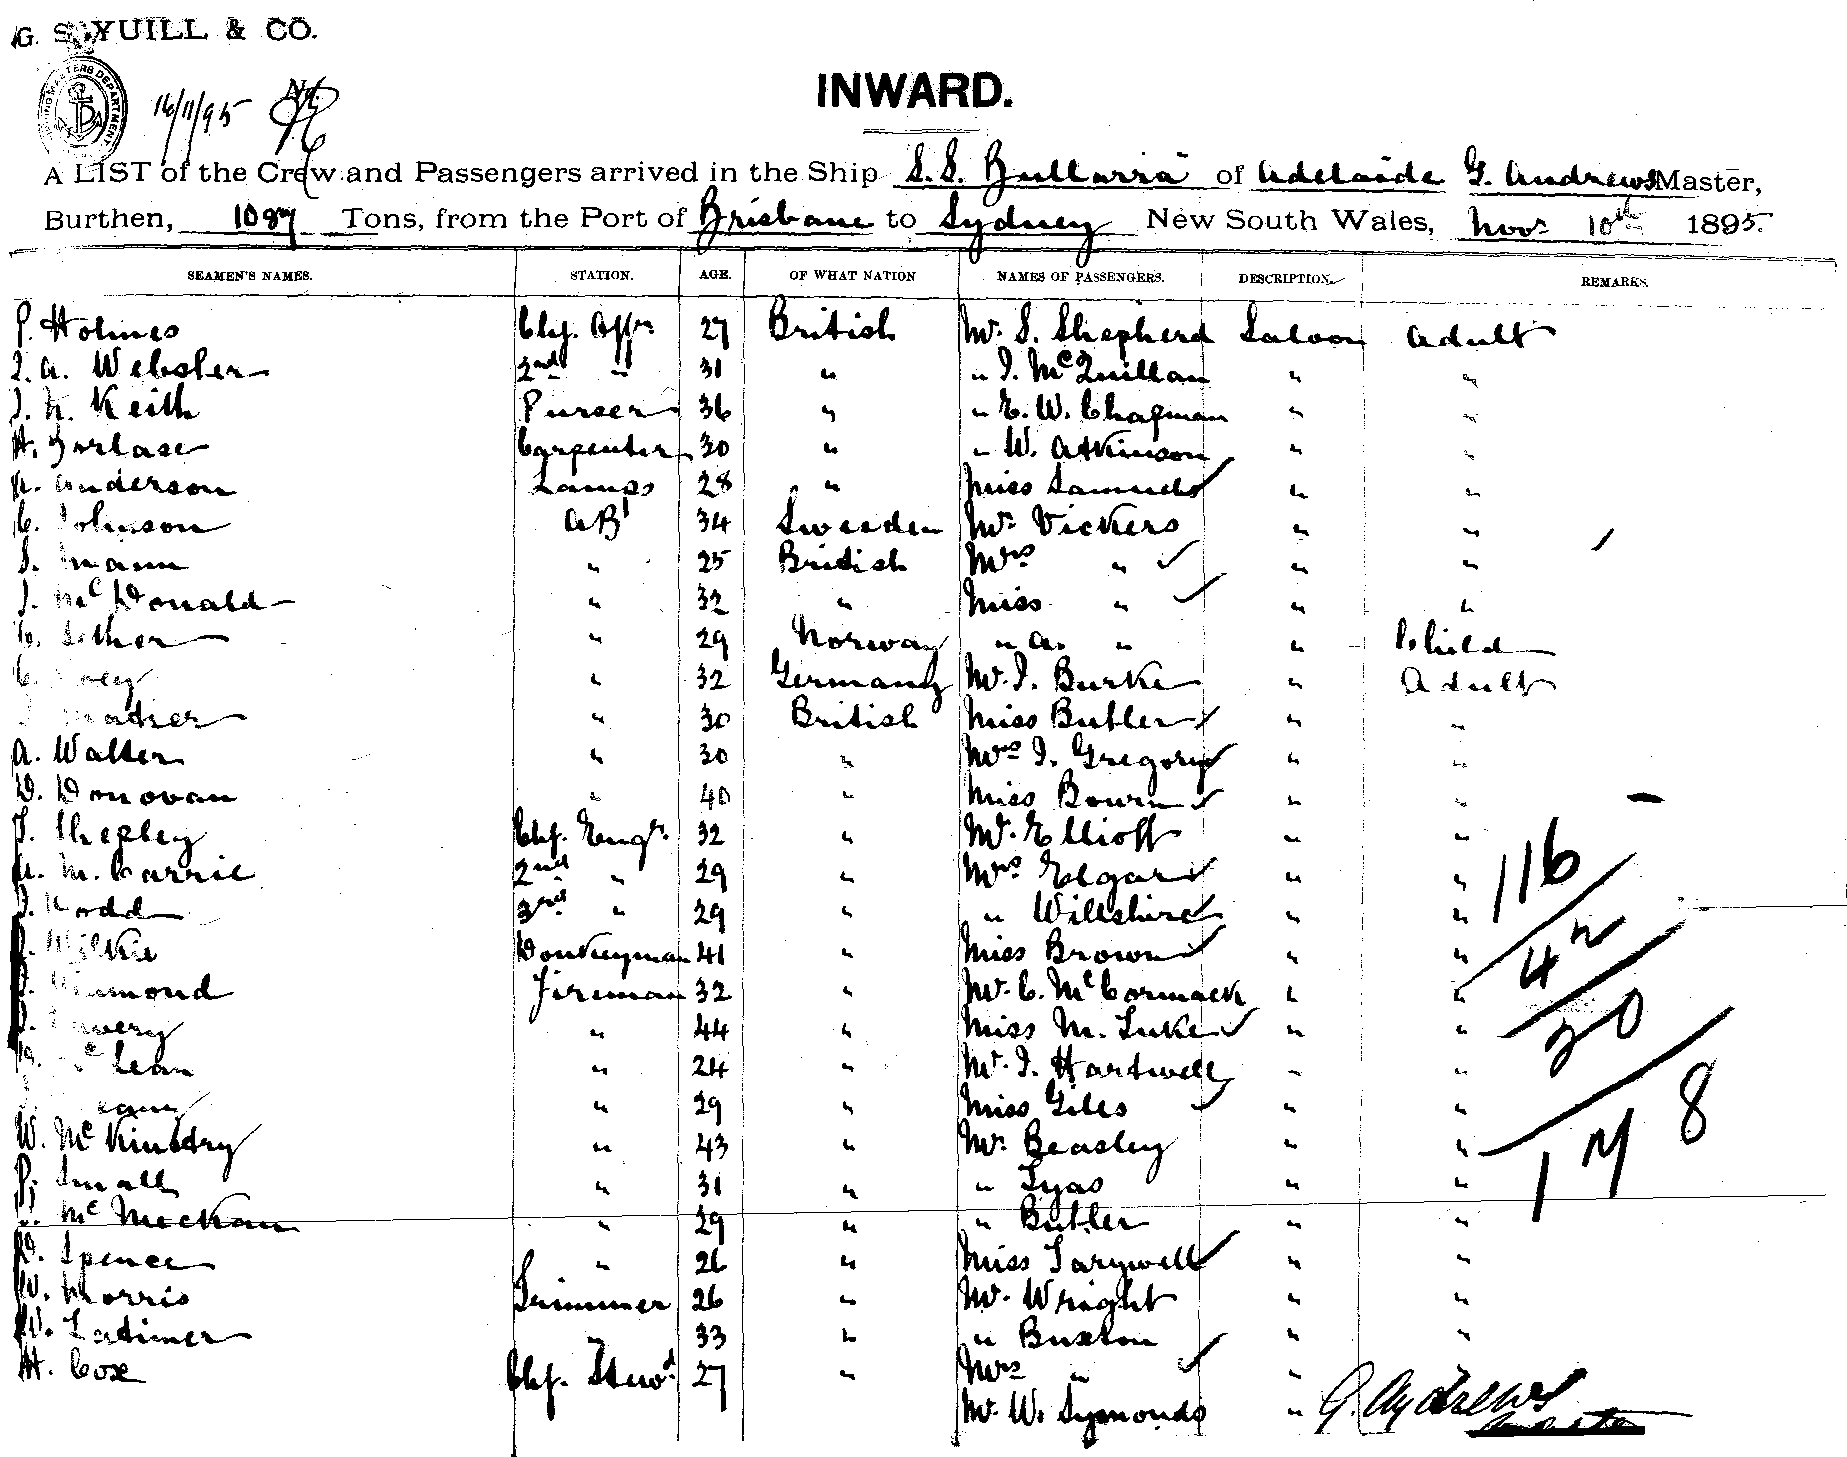 G. S. YUILL & CO.
16/11/95
INWARD.
A LIST of the Crew and Passengers arrived in the Ship S.S. Bullarra of Adelaide G. Andrews Master,
Burthen, 1087 Tons, from the Port of Brisbane to Sydney New South Wales, Novr 10th 1895.
SEAMEN'S NAMES. STATION. AGE. OF WHAT NATION NAMES OF PASSENGERS. DESCRIPTION. REMARKS.
P. Holmes Chf. Offr 27 British Mr. S. Shepherd Saloon Adult
A. Webster 2nd " 31 " " J. McQuillan " "
Keith Purser 36 " " E. W. Chapman " "
H. Carpenter 30 " " W. Atkinson " "
Anderson Lamps 28 " Miss Samuels " "
C. Johnson AB 34 Sweeden Mr Vickers " "
S. Mann " 25 British Mrs " " "
J. McDonald " 32 " Miss " " "
" 29 Norway " A. " " Child
" 32 Germany Mr. J. Burke " Adult
" 30 British Miss Butler " "
A. Walter " 30 " Mrs J. Gregory " "
D. Donovan " 40 " Miss Bourn " "
Shepley Chf. Engr. 32 " Mr. Elliott " "
M. Carrie 2nd " 29 " Mrs Elgar " "
Dodd 3rd " 29 " " Willshire " "
Wilkie Donkeyman 41 " Miss Brown " "
Fireman 32 " Mr. C. McCormack " "
" 44 " Miss M. Luke " "
Lean " 24 " Mr. J. Hartwell " "
" 29 " Miss Giles " "
W. McKindry " 43 " Mr. Beasley " "
P. Small " 31 " " Lyas " "
McMeckan " 29 " " Butler " "
D. Spence " 26 " Miss " "
W. Morris Trimmer 26 " Mr. Wright " "
W. Latimer " 33 " " Buxton " "
H. Cox Chf. Stewd 27 " Mrs " "
Mr. W. Symonds "
G. Andrews
Master
116
42
20
178